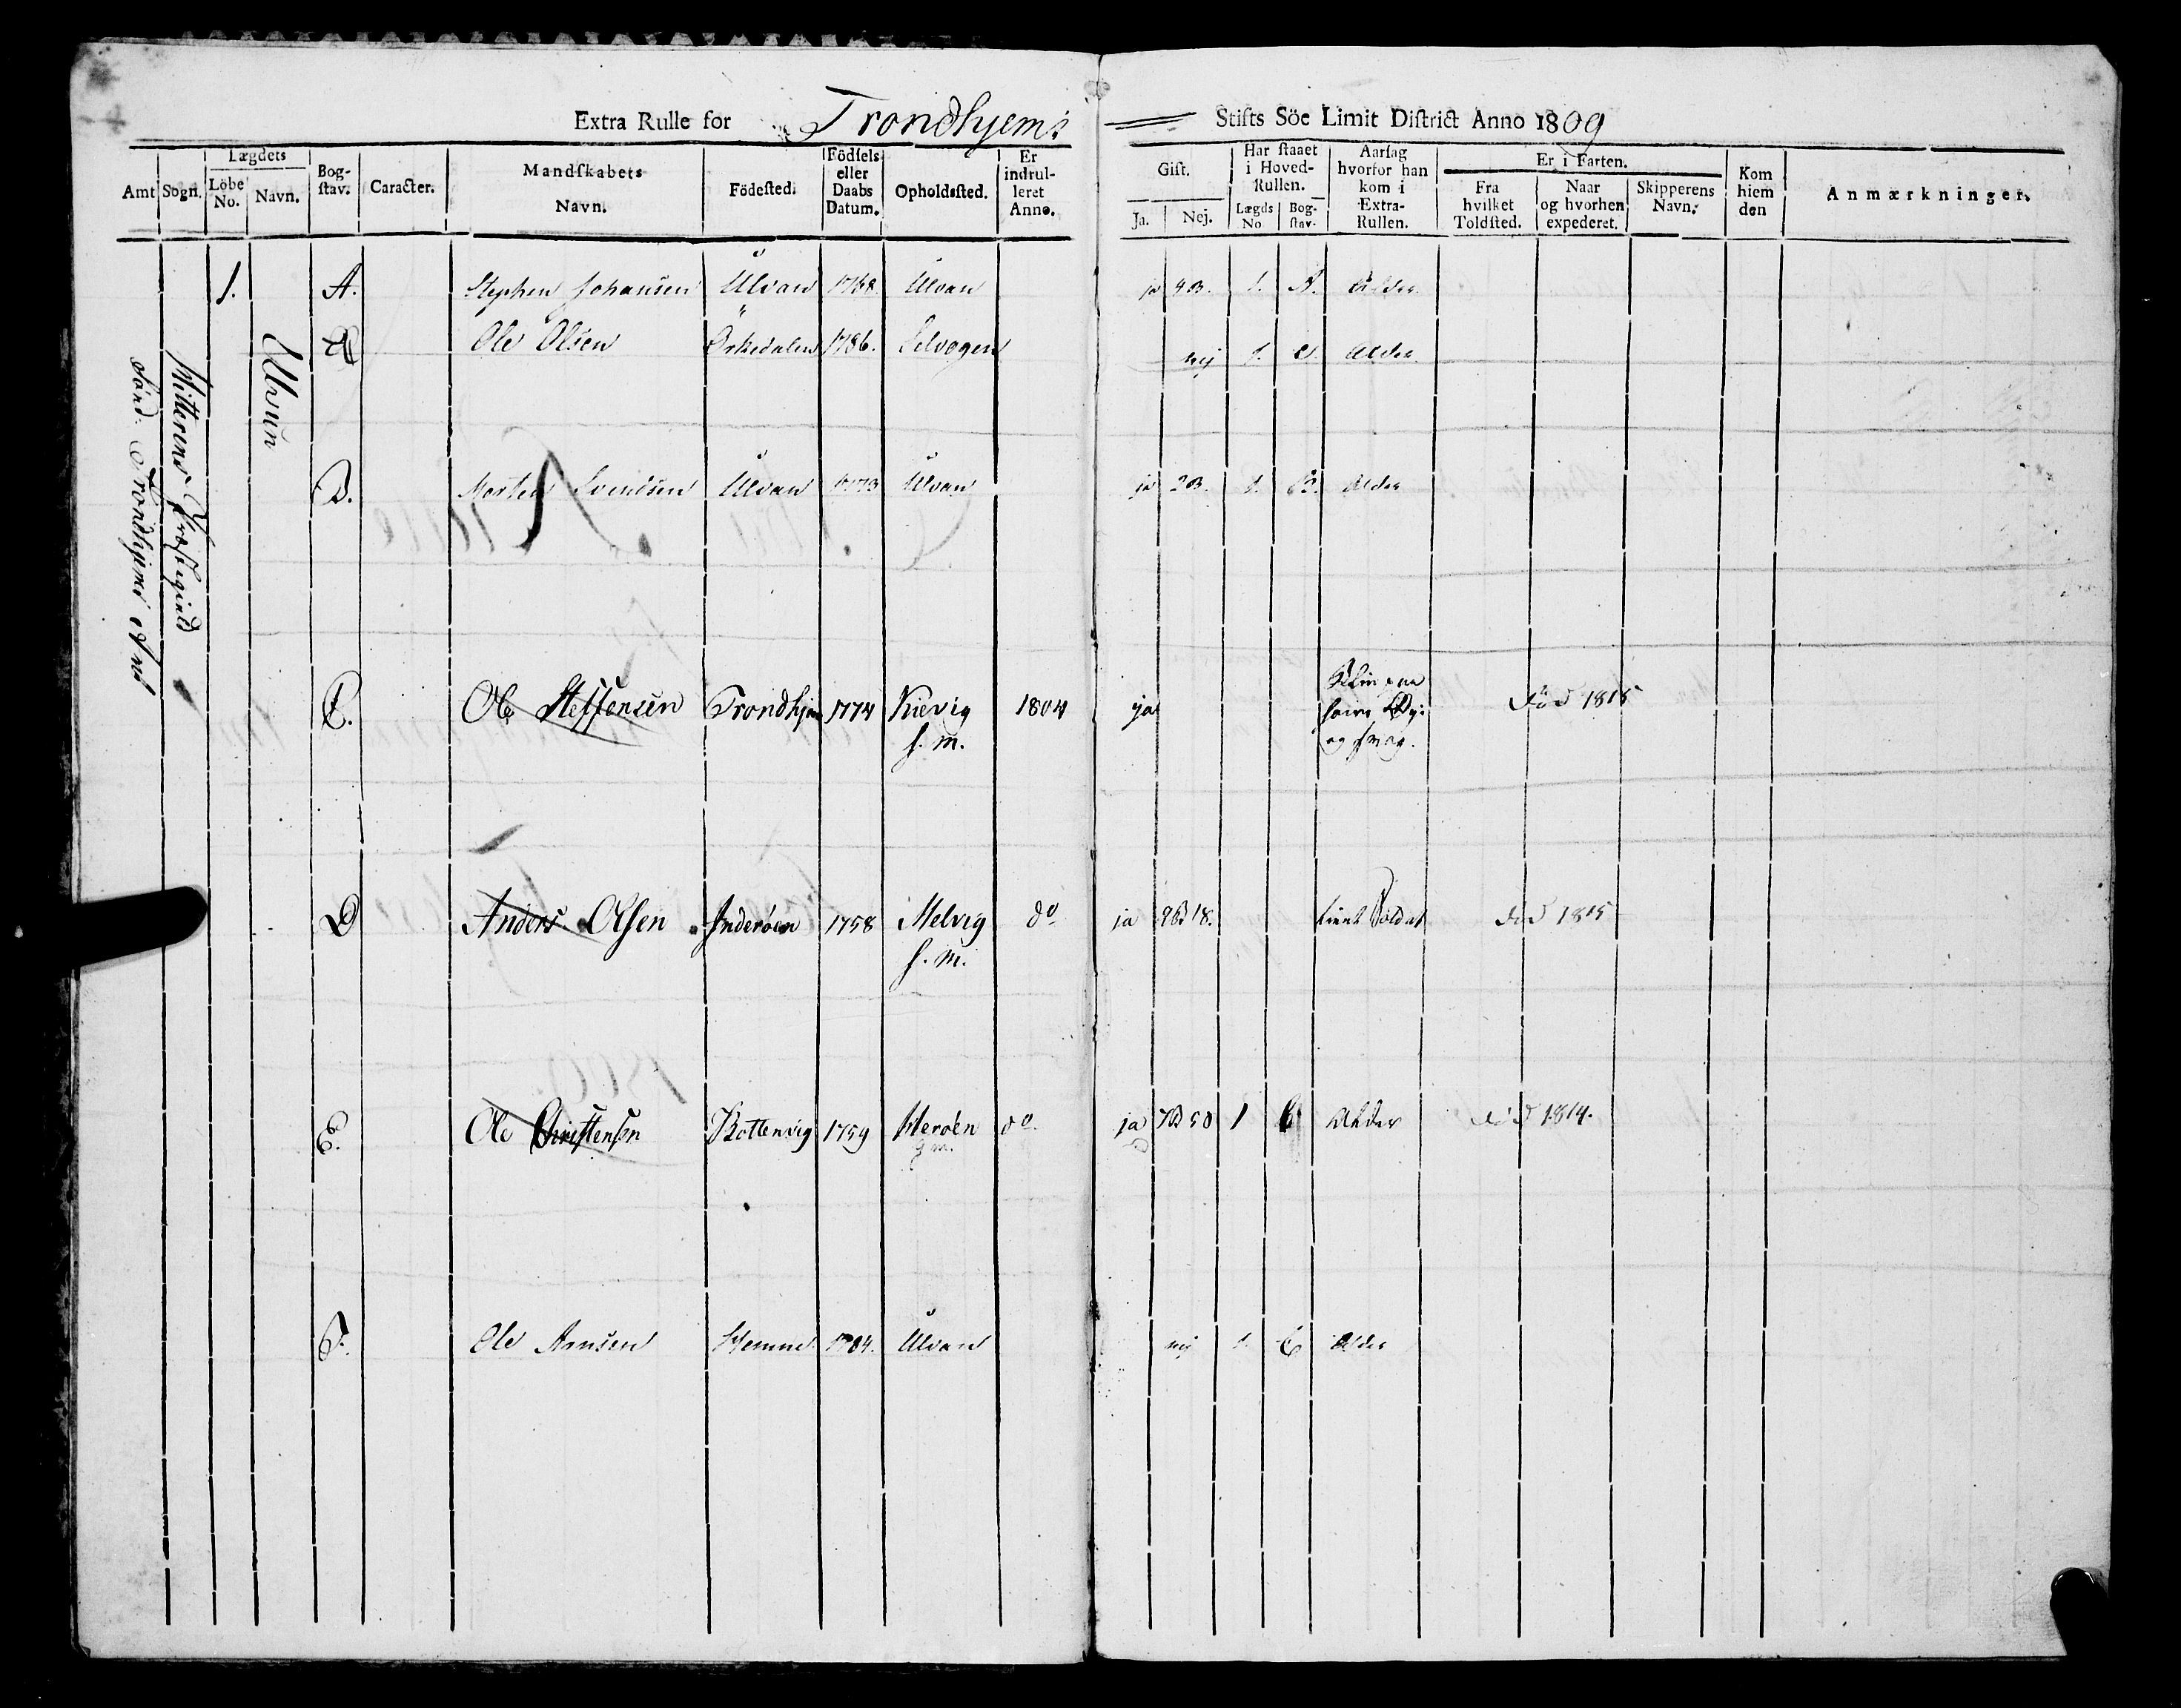 Extra Rulle for Trondhjems Stifts Söe Limit District Anno 1809
Amt Sogn. Lægdets Löbe No. Navn. Bog-stav. Caracter. Mandskabets Navn. Födested. Födsels eller Daabs Datum. Opholdssted. Er indrul-leret Anno. Gift. Ja. Nej. Har staaet i Hoved-Rullen. Lægds No Bog-stav. Aarsag hvorfor han kom i Extra-Rullen. Er i Farten. Fra hvilket Toldsted. Naar og hvorhen expederet. Skipperens Navn. Kom hiem den Anmærkninger.
Sönd. Trondhjems Amt
Hitterens Præstegield
Ulvun
1. A. Stephen Johansen Ulvan 1768. Ulvan ja 4 B. 1. A. Alder
Ole Olsen Örkedalen 1786. Selvogen nej 1. C. Alder
B. Morten Svendsen Ulvan 1773 Ulvan ja 2 B. 1. B. Alder
C. Ole Steffensen Trondhjem 1774 Kiævig 1804 ja Död 1815
h. m.
og smag.
D Anders Olsen Inderöen 1758 Melvig do ja 18. Soldat Död 1815
h. m.
E. Ole Christensen Bottenvig 1759 Heröen do ja 1 Alder Död 1814.
g m.
F. Ole Arnsen Hemne 1784. Ulvan nej 1. C Alder